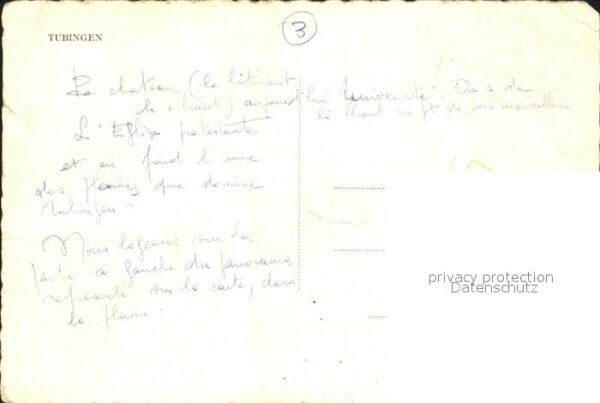 3
TUBINGEN
Le chateau (le bâtiment
le + haut) aujourd'hui Université. On a de
là haut un pt de vue merveilleux
L'Eglise protestante
et au fond l'une
des plaines que domine
Tubingen.
Nous logeons sur la
partie à gauche du panorama
représenté sur la carte, dans
la plaine.
privacy protection
Datenschutz